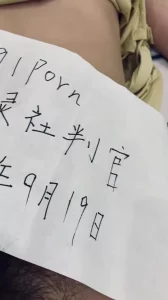 91Porn
社判官
9月19日